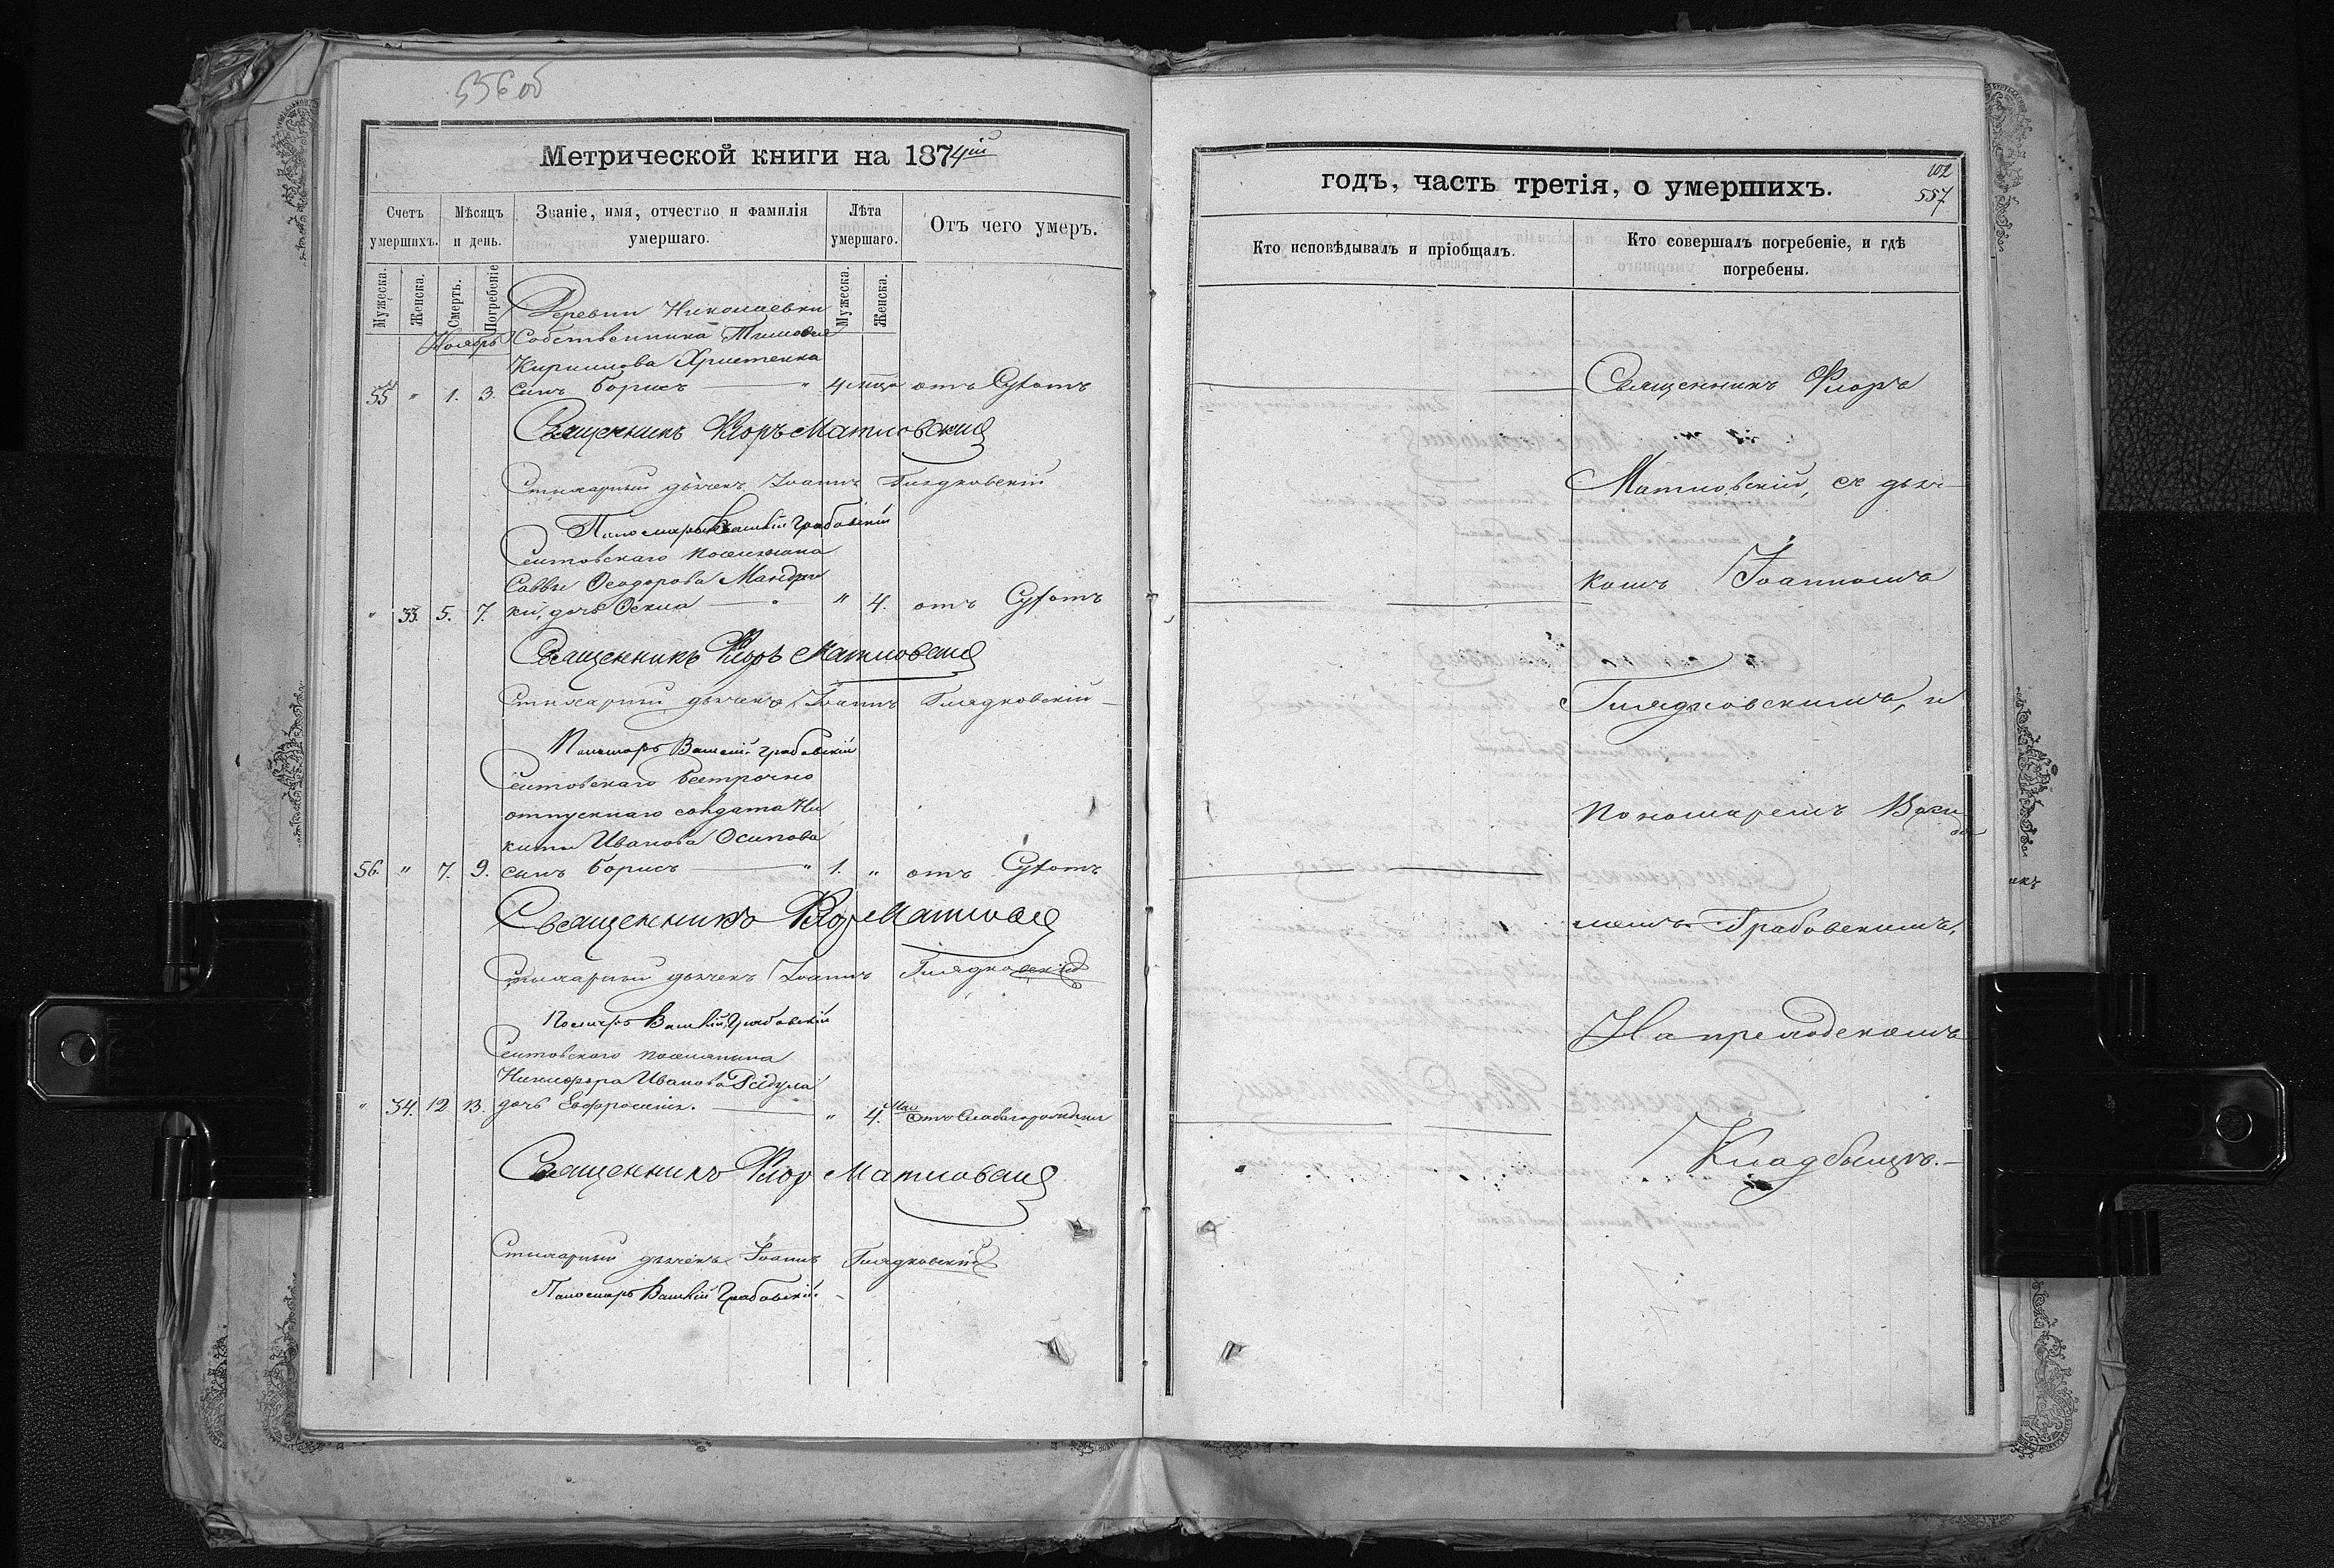 556 об
Метрической книги на 1874ій
Счетъ умершихъ.
Мѣсяцъ и день.
Званіе, имя, отчество и фамилія умершаго.
Лѣта умершаго.
Отъ чего умеръ.
Мужеска.
Женска.
Смерть.
Погребеніе
Мужеска.
Женска.
Деревни Николаевки
Ноябрь Собственника Тимофея
Кирилова Христенка
55 " 1. 3. сынъ Борисъ — " 4 мѣця отъ Сухотъ
Священникъ Флоръ Матловскій
Стихарный дьячекъ Іоаннъ Глядковскій
Пономарь Василій Грабовскій
Сеитовскаго поселянина
Саввы Ѳеодорова
" 33. 5. 7. ки, дочь — " 4. отъ Сухотъ
Священникъ Флоръ Матловскій
Стихарный дьячекъ Іоаннъ Глядковскій
Пономарь Василій Грабовскій
Сеитовскаго безсрочно
отпускнаго солдата Ни
киты Иванова Осипова
56. " 7. 9. сынъ Борисъ — " 1. " отъ Сухотъ
Священникъ Флоръ Матловскій
Стихарный дьячекъ Іоаннъ Глядковскій
Пономарь Василій Грабовскій
Сеитовского поселянина
Никифора Иванова
" 34. 12 13. дочь Евфросинія. — " 4.
Священникъ Флоръ Матловскій
Стихарный дьячекъ Іоаннъ Глядковскій
Пономарь Василій Грабовскій
557
годъ, часть третія, о умершихъ.
Кто исповѣдывалъ и пріобщалъ.
Кто совершалъ погребеніе, и гдѣ погребены.
Священникъ Флоръ
Матловскій, съ дьяч-
комъ Іоанномъ
Глядковскимъ, и
пономаремъ Васи
ліемъ Грабовскимъ,
На приходскомъ
Кладбищѣ.